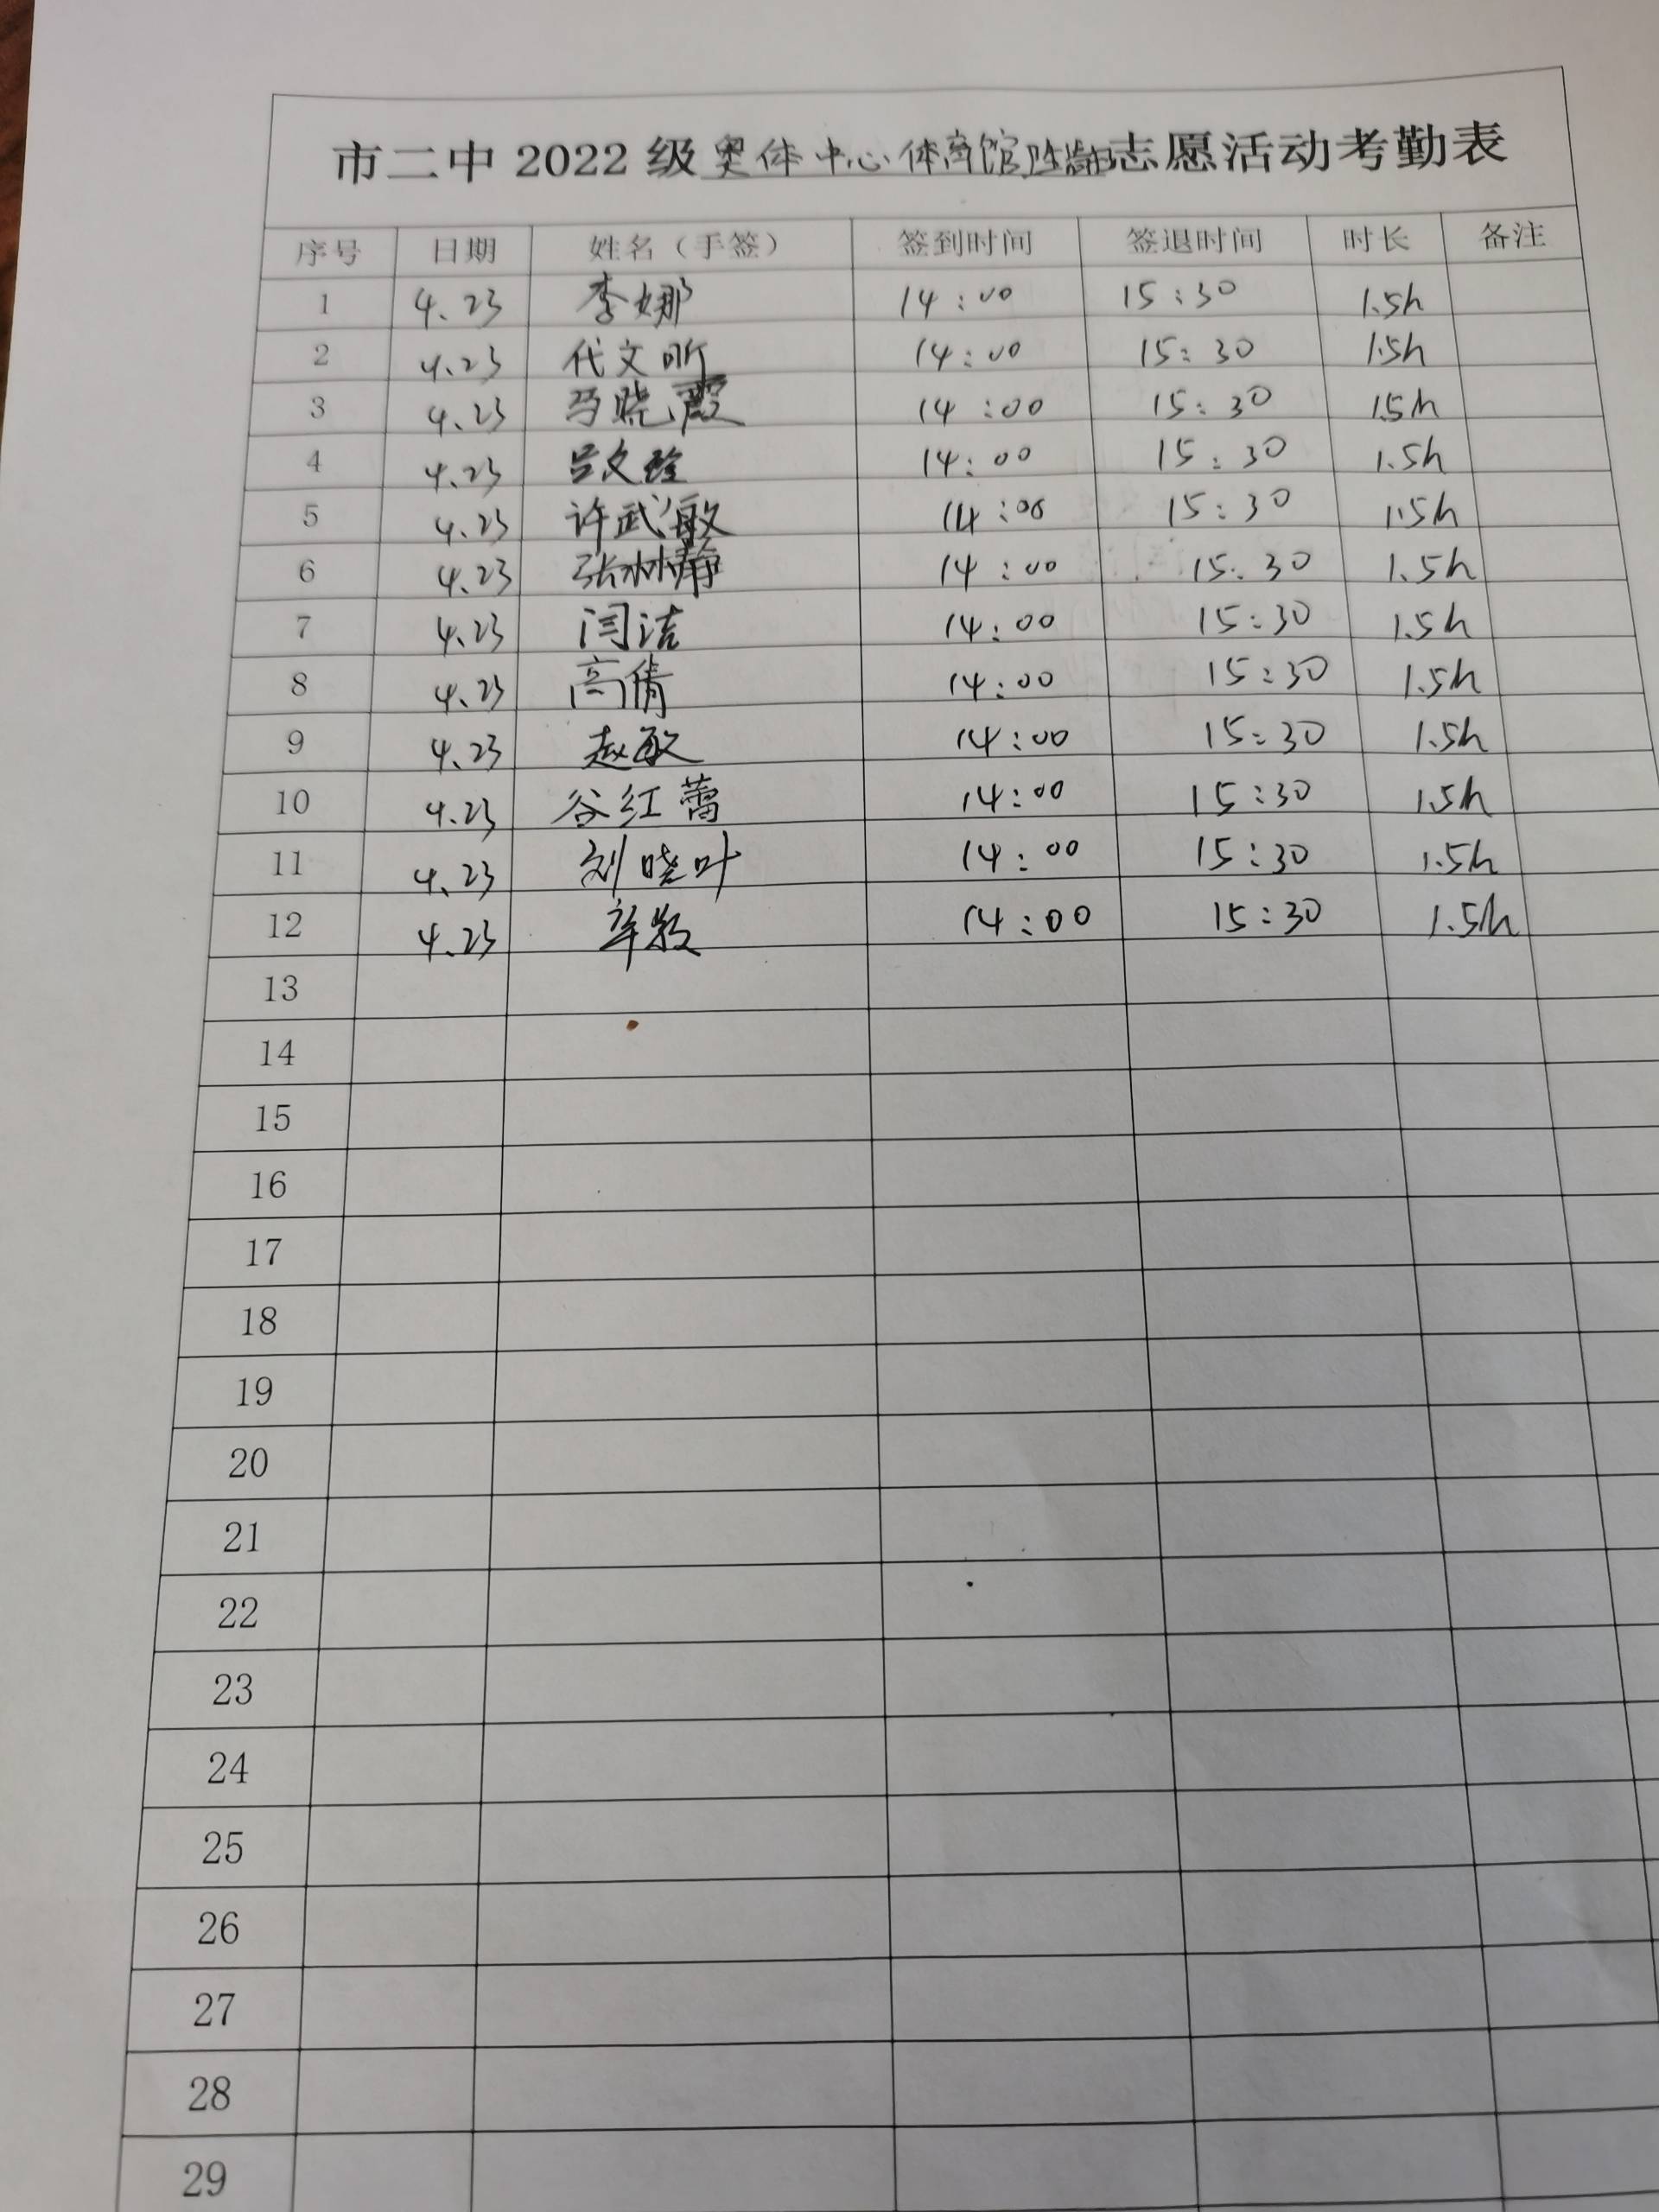 市二中 2022 级 奥体中心体育馆 志愿活动考勤表
序号 日期 姓名（手签） 签到时间 签退时间 时长 备注
1 4.23 李娜 14:00 15:30 1.5h
2 4.23 代文昕 14:00 15:30 1.5h
3 4.23 马晓霞 14:00 15:30 1.5h
4 4.23 吕文 14:00 15:30 1.5h
5 4.23 许武敏 14:00 15:30 1.5h
6 4.23 张林静 14:00 15:30 1.5h
7 4.23 闫洁 14:00 15:30 1.5h
8 4.23 高倩 14:00 15:30 1.5h
9 4.23 赵敏 14:00 15:30 1.5h
10 4.23 谷红蕾 14:00 15:30 1.5h
11 4.23 刘晓叶 14:00 15:30 1.5h
12 4.23 14:00 15:30 1.5h
13
14
15
16
17
18
19
20
21
22
23
24
25
26
27
28
29